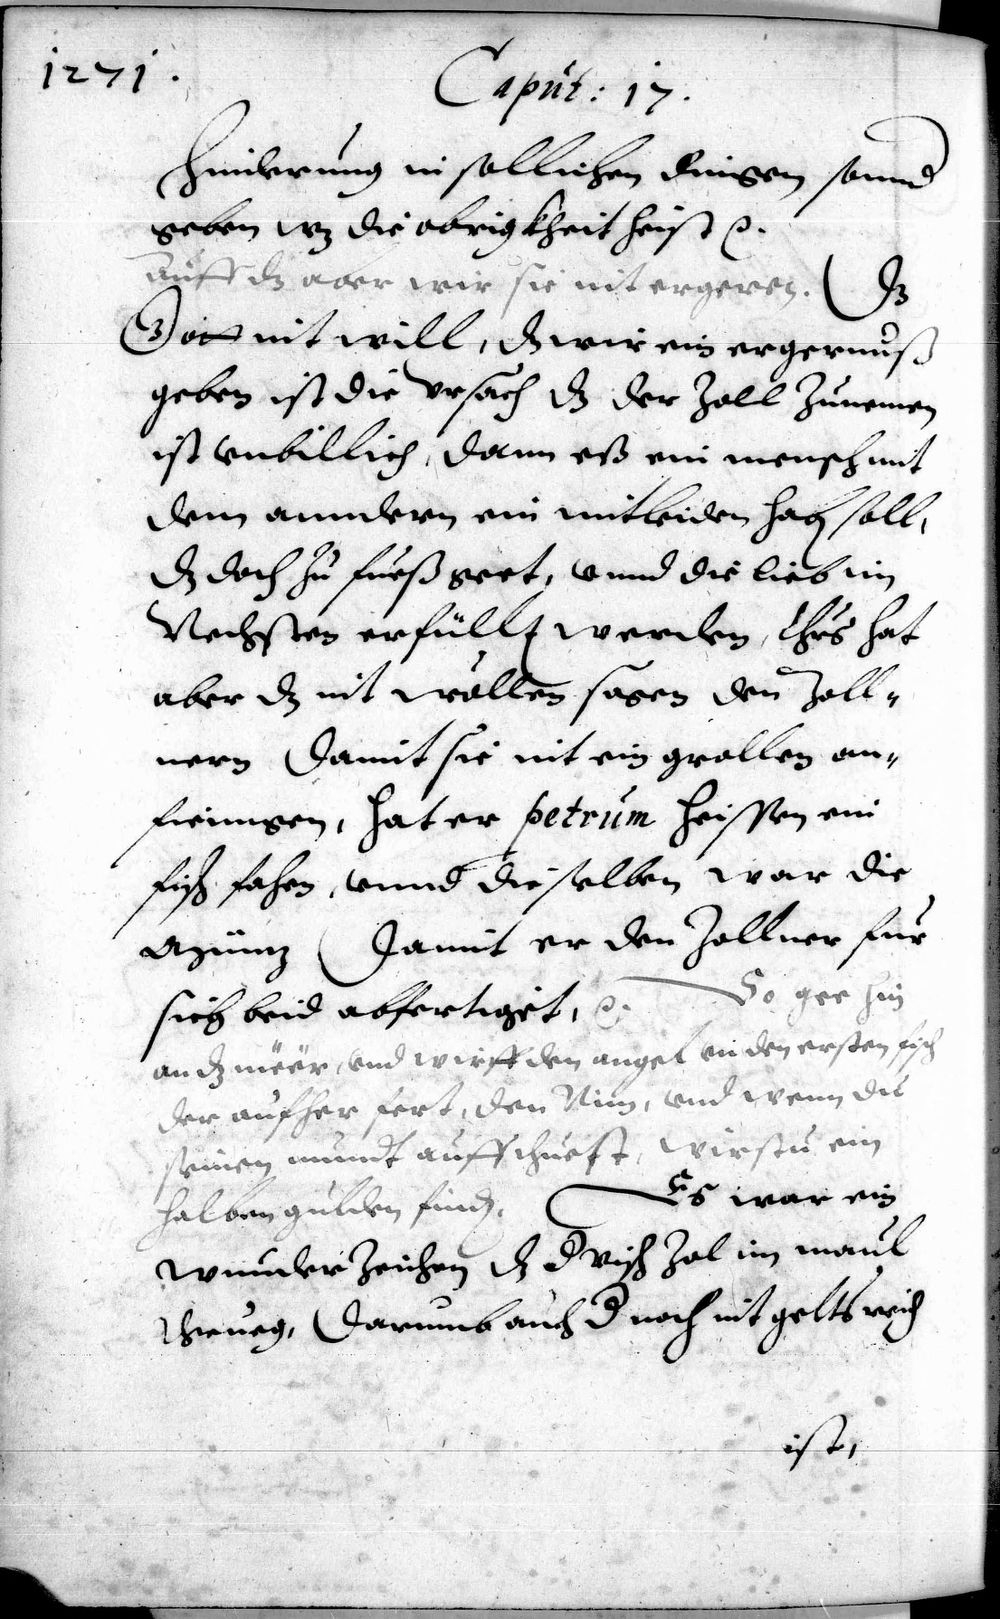 1271.
Caput: 17.
hinderung in sollichen dingen sonnd
geben wz die obrigkheit heist ꝛc.
auff dz aber wir sie nit ergeren. Dz
Gott nit will, dz wir ein ergernuß
geben ist die vrsach dz der Zoll Zunemen
ist vnbillich, dann eß ein mensch mit
dem anndern ein mitleiden hab soll,
dz doch zu fueß geet, vnnd die lieb im
Nechsten erfüllt werden, Chrs hat
aber dz nit wöllen sagen den Zoll-
nern damit sie nit ein grollen an-
fiengen, hat er petrum heissen ein
fisch fahen, vnnd dieselben war die
Müntz damit er den Zollner fur
sich beid abfertiget, ꝛc. So gee hin
an dz meër, vnd wirff den angel vnd den ersten fisch
der aufher fert, den Nim, vnd wenn du
seinen mundt auffthuest, wirstu ein
halben gulden find. Es war ein
wunderzeichen dz d visch Zol im maul
trueg, darumb auch d noch nit gelts reich
ist,